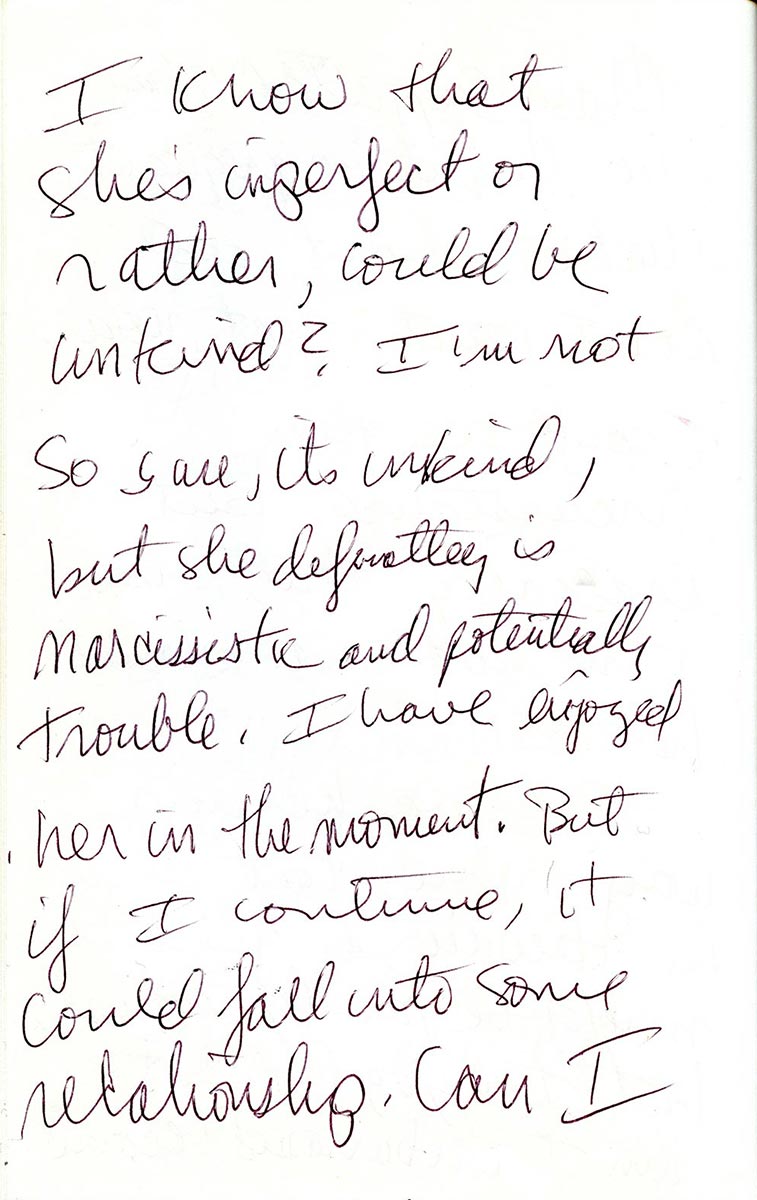 I know that
she's imperfect or
rather, could be
unkind? I'm not
so sure, its unkind,
but she definatley is
narcissistic and potentially
trouble. I have enjoyed
her in the moment. But
if I continue, it
could fall into some
relationship. Can I